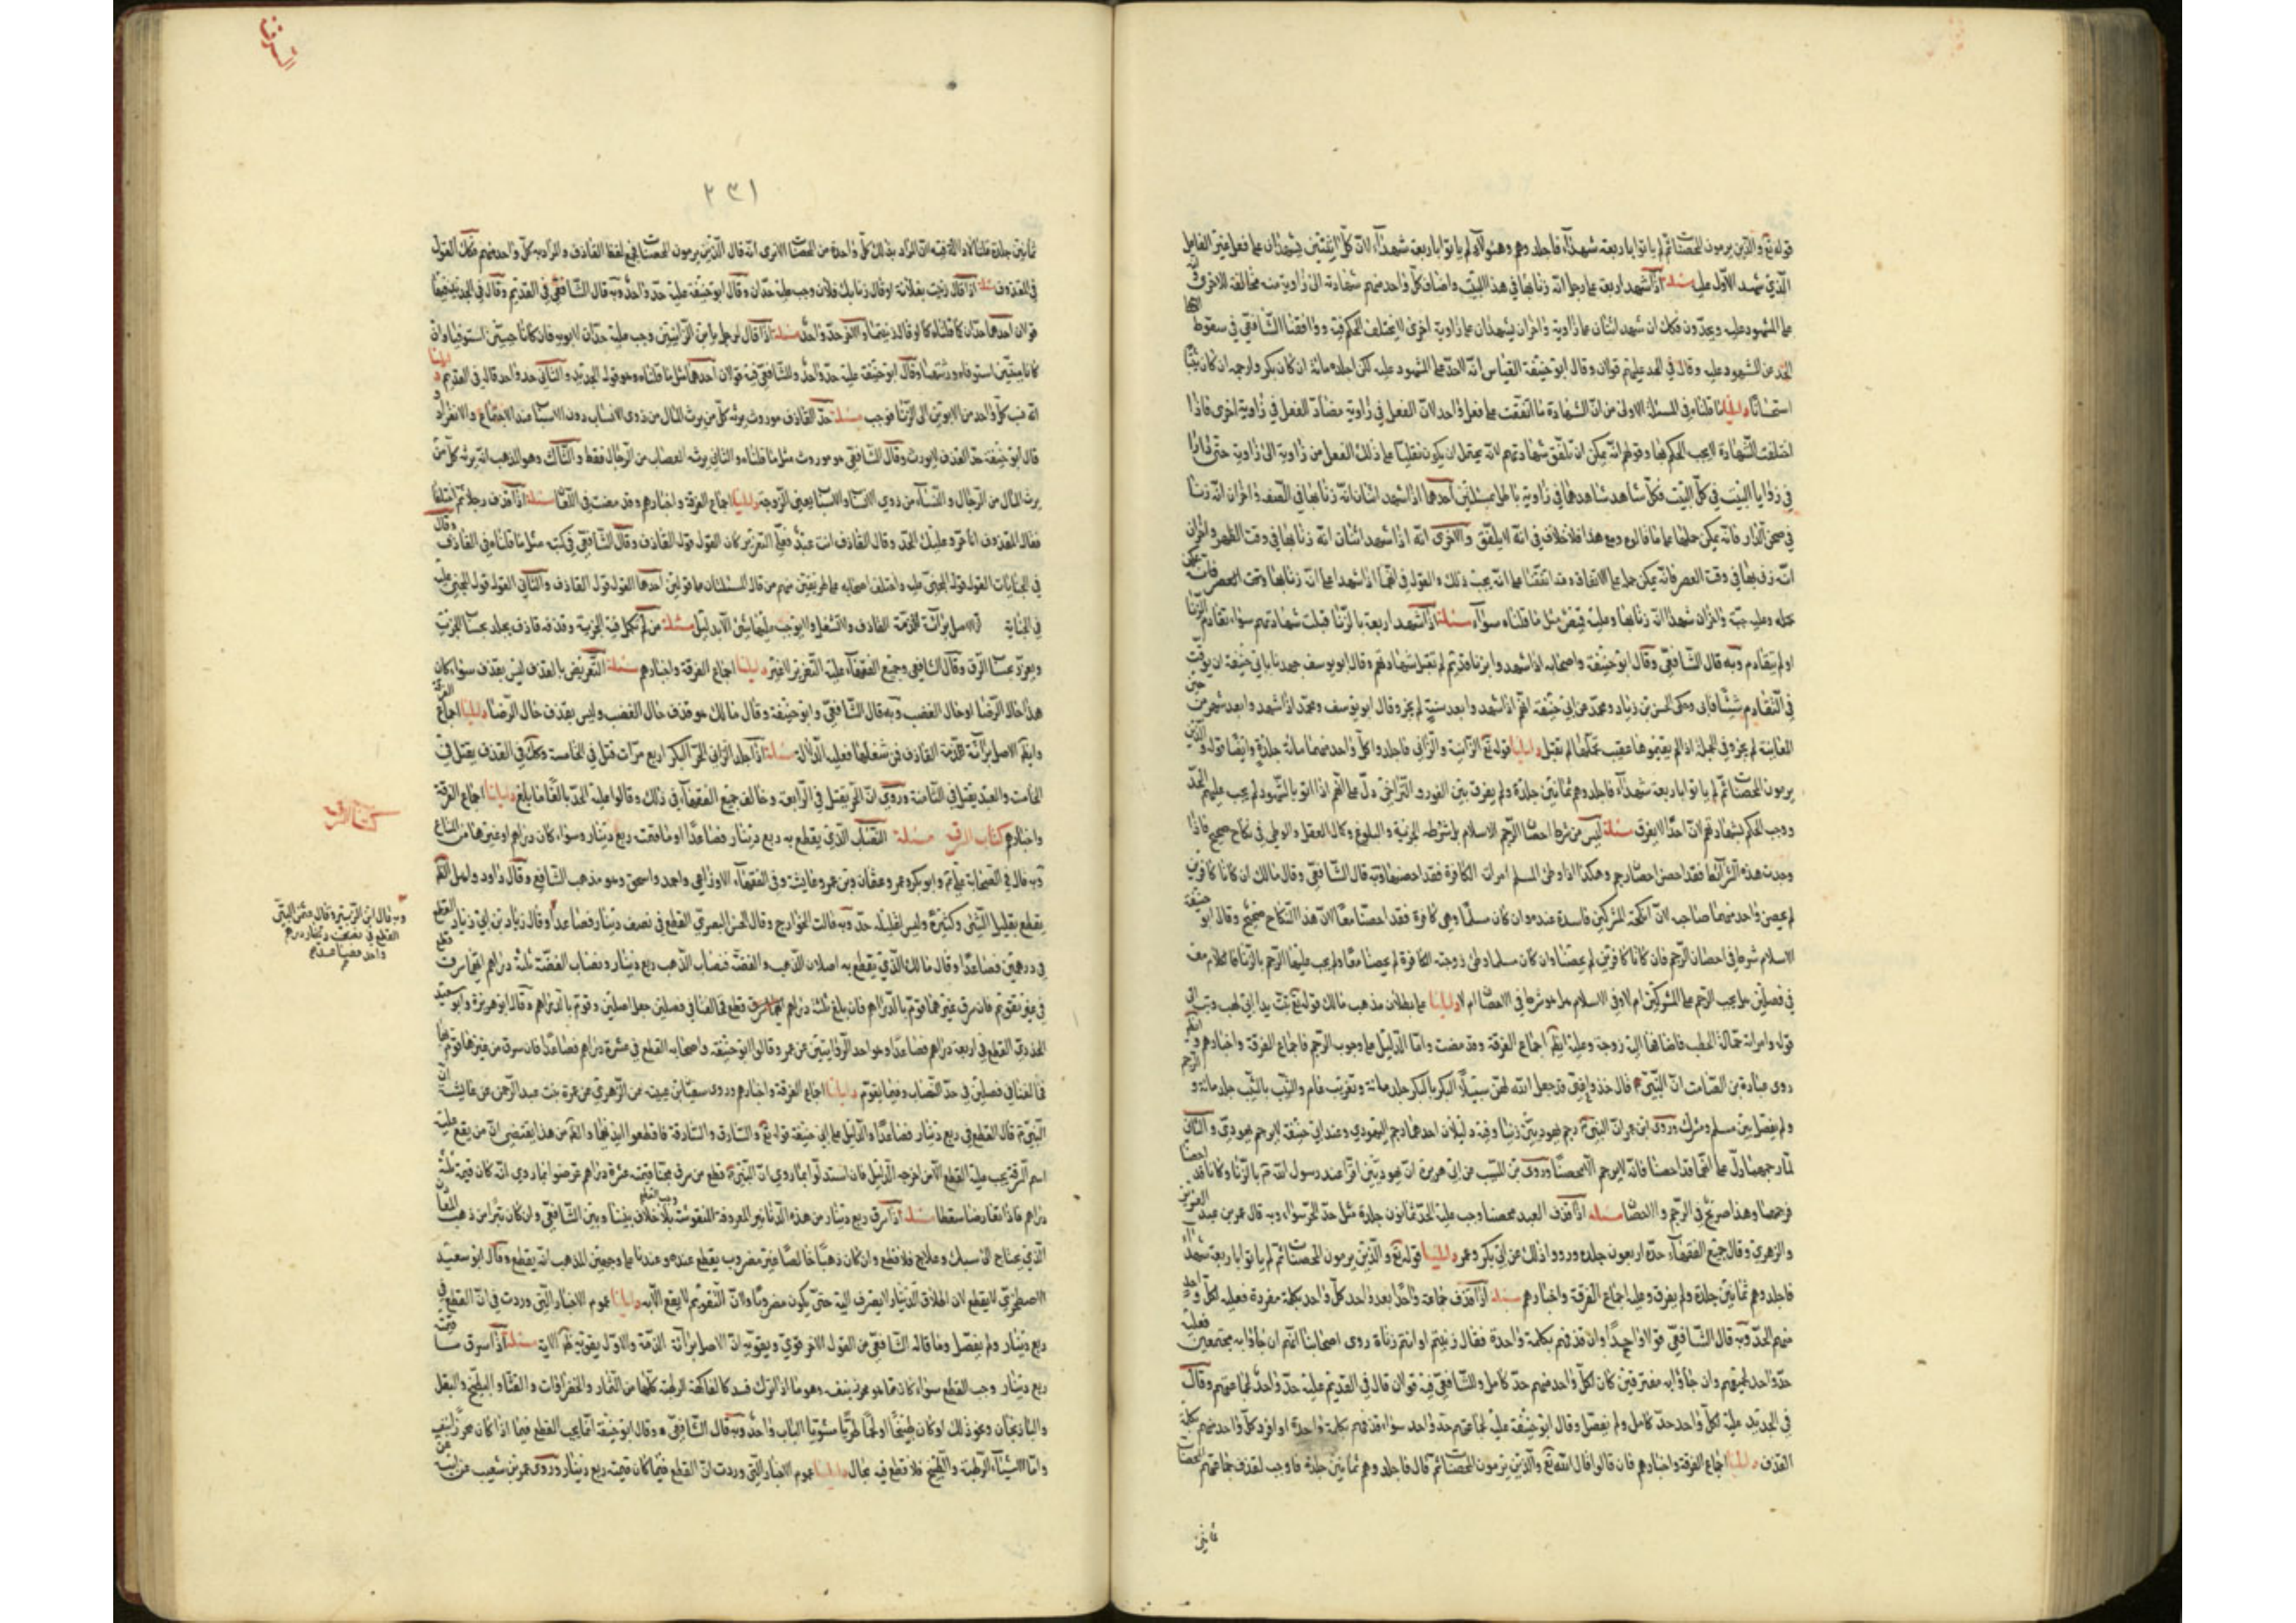 قوله تع والذين يرمون المحصنات ثم لم ياتوا باربعة شهداء فاجلدوهم وهؤلاء لم ياتوا باربعة شهداء لان كل اثنين يشهدان على فعل غير الفعل
الذي شهد الاول عليه مسئلة اذا شهد اربعة على رجل انه زنا بها في هذا البيت واضاف كل واحد منهم شهادته الى زاوية منه مخالفة للاخرى
على المشهود عليه ويحدون فكك ان شهد اثنان على زاوية واخران يشهدان على زاوية اخرى لا يختلف الحكم فيه ووافقنا الشافعي في سقوط
الحد من المشهود عليه وقال في الحد عليهم قولان وقال ابو حنيفة القياس انه لا حد على المشهود عليه لكن اجلده مائة ان كان بكرا وارجمه ان كان ثيبا
استحسانا دليلنا ما قلناه في المسئلة الاولى من ان الشهادة ما اتفقت على فعل واحد لان الفعل في زاوية مضاد الفعل في زاوية اخرى فاذا
اختلفت الشهادة لا يجب الحكم بها وقولهم انه يمكن ان تلفق شهادتهم لانه يحتمل ان يكون نقلها ذلك الفعل من زاوية الى زاوية حتى
في زوايا البيت في كل البيت فكل شاهد شاهدهما في زاوية باطل بمسئلتين احدهما اذا شهد اثنان انه زنا بها في الصفه واخران انه زنا
في صحن الدار فانه يمكن حملها على ما قالوه ومع هذا فلا خلاف في انه لا يلفق والاخرى انه اذا شهد اثنان انه زنا بها في وقت الظهر واخران
او لم يتقادم وبه قال الشافعي وقال ابو حنيفة واصحابه اذا شهدوا بزنا قديم لم تقبل شهادتهم وقال ابو يوسف جهدنا بابي حنيفة ان يوقت
في التقادم شيئا فابى وحكى الحسن بن زياد ومحمد عن ابي حنيفة انهم اذا شهدوا بعد سنة لم يجز وقال ابو يوسف ومحمد اذا شهدوا بعد شهر من
يرمون المحصنات ثم لم ياتوا باربعة شهداء فاجلدوهم ثمانين جلدة ولم يفرق بين الفور والتراخي دل على انهم اذا اتوا بالشهود لم يجب عليهم الحد
ووجب الحكم بشهادتهم لان احدا لا يفرق مسئلة ليس من شرط احصان الرجم الاسلام بل شرطه الحرية والبلوغ وكمال العقل والوطي في نكاح صحيح فاذا
وجدت هذه الشرائط فقد احصن احصان رجم وهكذا اذا وطئ المسلم امراته الكافرة فقد احصنها وبه قال الشافعي وقال مالك ان كانا كافرين
لم يحصن واحد منهما صاحبه لان انكحة المشركين فاسدة عنده وان كان مسلما وهي كافرة فقد احصنا معا لان هذا النكاح صحيح وقال ابو حنيفة
الاسلام شرط في احصان الرجم فان كانا كافرين لم يحصنا وان كان مسلما وطئ زوجته الكافرة لم يحصنا معا ولم يجب عليهما الرجم بالزنا فالكلام معه
في فصلين هل يجب الرجم على المشركين ام لا وفي الاسلام هل هو شرط في الاحصان ام لا دليلنا على بطلان مذهب مالك قوله تع تبت يدا ابي لهب وتب الى
قوله وامراته حمالة الحطب فاضافها اليه زوجة وعليه ايضا اجماع الفرقة وقد مضت واما الدليل على وجوب الرجم فاجماع الفرقة واخبارهم وايضا
روى عبادة بن الصامت ان النبي قال خذوا عني قد جعل الله لهن سبيلا البكر بالبكر جلد مائة وتغريب عام والثيب بالثيب جلد مائة والرجم
ولم يفصل بين مسلم ومشرك وروى ابن عمر ان النبي رجم يهوديين زنيا وفيه دليلان احدهما رجم اليهودي وعند ابي حنيفة لا يرجم يهودي والثاني
لما رجمهما دل على انهما قد احصنا فانه لا يرجم الا محصنا وروى بن المسيب عن ابي هريرة ان يهوديين اقرا عند رسول الله بالزنا وكانا قد احصنا
فرجمهما وهذا صريح في الرجم والاحصان مسئلة اذا قذف العبد محصنا وجب عليه الحد ثمانون جلدة مثل حد الحر سواء وبه قال عمر بن عبد العزيز
والزهري وقال جميع الفقهاء حده اربعون جلدة ورووا ذلك عن ابي بكر وعمر دليلنا قوله تع والذين يرمون المحصنات ثم لم ياتوا باربعة شهداء
فاجلدوهم ثمانين جلدة ولم يفرق وعليه اجماع الفرقة واخبارهم مسئلة اذا قذف جماعة واحدا بعد واحد كل واحد بكلمة مفردة فعليه لكل واحد
منهم الحد وبه قال الشافعي قولا واحدا وان قذفهم بكلمة واحدة فقال زنيتم او انتم زناة روى اصحابنا انهم ان جاؤا به مجتمعين فعليه
حد واحد لجميعهم وان جاؤا به مفترقين كان لكل واحد منهم حد كامل وللشافعي فيه قولان قال في القديم عليه حد واحد لجماعتهم وقال
في الجديد عليه لكل واحد حد كامل ولم يفصل وقال ابو حنيفة عليه لجماعتهم حد واحد سواء قذفهم بكلمة واحدة او افرد كل واحد منهم بكلمة
القذف دليلنا اجماع الفرقة واخبارهم فان قالوا قال الله تع والذين يرمون المحصنات ثم قال فاجلدوهم ثمانين جلدة فاوجب لقذف جماعتهم المحصنات
ثمانين
السرقة
٢٣١
ثمانين جلدة قلنا لا دلالة فيه لان المراد بذلك كل واحدة من المحصنات الا ترى انه قال الذين يرمون المحصنات فجمع لفظ القاذف والمراد به كل واحد منهم فكك القول
في المقذوف مسئلة اذا قال زنيت بفلانة او قال زنا بك فلان وجب عليه حدان وقال ابو حنيفة عليه حد واحد وبه قال الشافعي في القديم وقال في الجديد فيه
قولان احدهما حدان كما قلناه كما لو قال زنيتما والاخر حد واحد مسئلة اذا قال لرجل يا بن الزانيين وجب عليه حدان لابويه فان كانا حيين استوفيا وان
كانا ميتين استوفاه ورثتهما وقال ابو حنيفة عليه حد واحد وللشافعي فيه قولان احدهما مثل ما قلناه وهو قوله الجديد والثاني حد واحد قاله في القديم دليلنا
انه قذف كل واحد من الابوين الى الزنا فوجب مسئلة حد القاذف موروث يرثه كل من يرث المال من ذوي الانساب دون الاسباب عند الاجتماع والانفراد
قال ابو حنيفة حد القذف لا يورث وقال الشافعي هو موروث مثل ما قلناه والثاني يرثه العصبات من الرجال فقط والثالث وهو المذهب انه يرثه كل من
يرث المال من الرجال والنساء من ذوي الانساب والاسباب يعني الزوجية دليلنا اجماع الفرقة واخبارهم وقد مضت في اللعان مسئلة اذا قذف رجلا ثم اختلفا
فقال المقذوف انا حر وعليك الحد وقال القاذف انت عبد فعلي التعزير كان القول قول القاذف وقال الشافعي في كتبه مثل ما قلناه في القاذف وقال
في الجنايات القول قول المجني عليه واختلف اصحابه على طريقين منهم من قال المسئلتان على قولين احدهما القول قول القاذف والثاني القول قول المجني عليه
وبعزر بحساب الرق وقال الشافعي وجميع الفقهاء عليه التعزير لا غير دليلنا اجماع الفرقة واخبارهم مسئلة التعريض بالقذف ليس بقذف سواء كان
هذا حال الرضا او حال الغضب وبه قال الشافعي وابو حنيفة وقال مالك هو قذف حال الغضب وليس بقذف حال الرضا دليلنا اجماع الفرقة
وايضا الاصل برائة ذمة القاذف فمن شغلها فعليه الدلالة مسئلة اذا جلد الزاني الحر البكر اربع مرات قتل في الخامسة وكك في القذف يقتل في
الخامسة والعبد يقتل في الثامنة وروى ان الحر يقتل في الرابعة وخالف جميع الفقهاء في ذلك وقالوا عليه الحد بالغا ما بلغ دليلنا اجماع الفرقة
واخبارهم كتاب السرقة مسئلة النصاب الذي يقطع به ربع دينار فصاعدا او ما قيمته ربع دينار سواء كان دراهم او غيرها من المتاع
وبه قال في الصحابة علي وابو بكر وعمر وعثمان وبن عمر وعايشة وفي الفقهاء الاوزاعي واحمد واسحق وهو مذهب الشافعي وقال داود واهل الظاهر
يقطع بقليل الشيء وكثيره وليس لقليله حد وبه قالت الخوارج وقال الحسن البصري القطع في نصف دينار فصاعدا وقال زياد بن ابي زياد القطع
في درهمين فصاعدا وقال مالك الذي يقطع به اصلان الذهب والفضة فنصاب الذهب ربع دينار ونصاب الفضة ثلثة دراهم ايهما سرق قطع
في غير تقويم فان سرق غيرهما قوم بالدراهم فان بلغ ثلثة دراهم قطع فخالفنا في فصلين جعل اصلين وقوم بالدراهم وقال ابو هريرة وابو سعيد
الخدري القطع في اربعة دراهم فصاعدا وهو احد الروايتين عن عمر وقال ابو حنيفة واصحابه القطع في عشرة دراهم فصاعدا فان سرق من غيرها قوم بها
فخالفنا في فصلين في حد النصاب وفيما يقوم دليلنا اجماع الفرقة واخبارهم وروى سفيان بن عيينه عن الزهري عن عمرة بنت عبد الرحمن عن عايشة ان
النبي قال القطع في ربع دينار فصاعدا والدليل على ابي حنيفة قوله تع والسارق والسارقة فاقطعوا ايديهما والظاهر من هذا يقتضي ان من يقع عليه
اسم السرقة يجب عليه القطع الا من اخرجه الدليل فان استدلوا بما روي ان النبي قطع من سرق مجنا قيمته عشرة دراهم عورضوا بما روي انه كان قيمته ثلثة
دراهم فاذا تعارضا سقطا مسئلة اذا سرق ربع دينار من هذه الدنانير المعروفة المنقوشة وجب القطع بلا خلاف بيننا وبين الشافعي وان كان تبرا من ذهب المعادن
الذي يحتاج الى سبك وعلاج فلا قطع وان كان ذهبا خالصا غير مضروب يقطع عنده وعندنا على وجهين المذهب انه يقطع وقال ابو سعيد
الاصطخري لا يقطع لان اطلاق الدينار لا يصرف اليه حتى يكون مضروبا ولان التقويم لا يقع الا به دليلنا عموم الاخبار التي وردت في ان القطع في
ربع دينار ولم يفصل وما قاله الشافعي من القول الاخر قوي ويقويه ان الاصل برائة الذمة والاول يقويه ظاهر الاية مسئلة اذا سرق ما قيمته
ربع دينار وجب القطع سواء كان مما هو محرز بنفسه وهو ما اذا ترك فسد كالفاكهة الرطبة كلها من الثمار والخضراوات والقثاء والبطيخ والبقل
والباذنجان ونحو ذلك او كان طبيخا او لحما طريا مشويا الباب واحد وبه قال الشافعي وقال ابو حنيفة انما يجب القطع فيما اذا كان محرزا بنفسه
واما الاشياء الرطبة والطبيخ فلا قطع فيه بحال دليلنا عموم الاخبار التي وردت ان القطع فيما كان قيمته ربع دينار وروى عمرو بن شعيب عن ابيه عن
كتاب السرقة
وبه قال ابن الزبير وقال عثمن البتي
القطع في
واحد فصاعدا